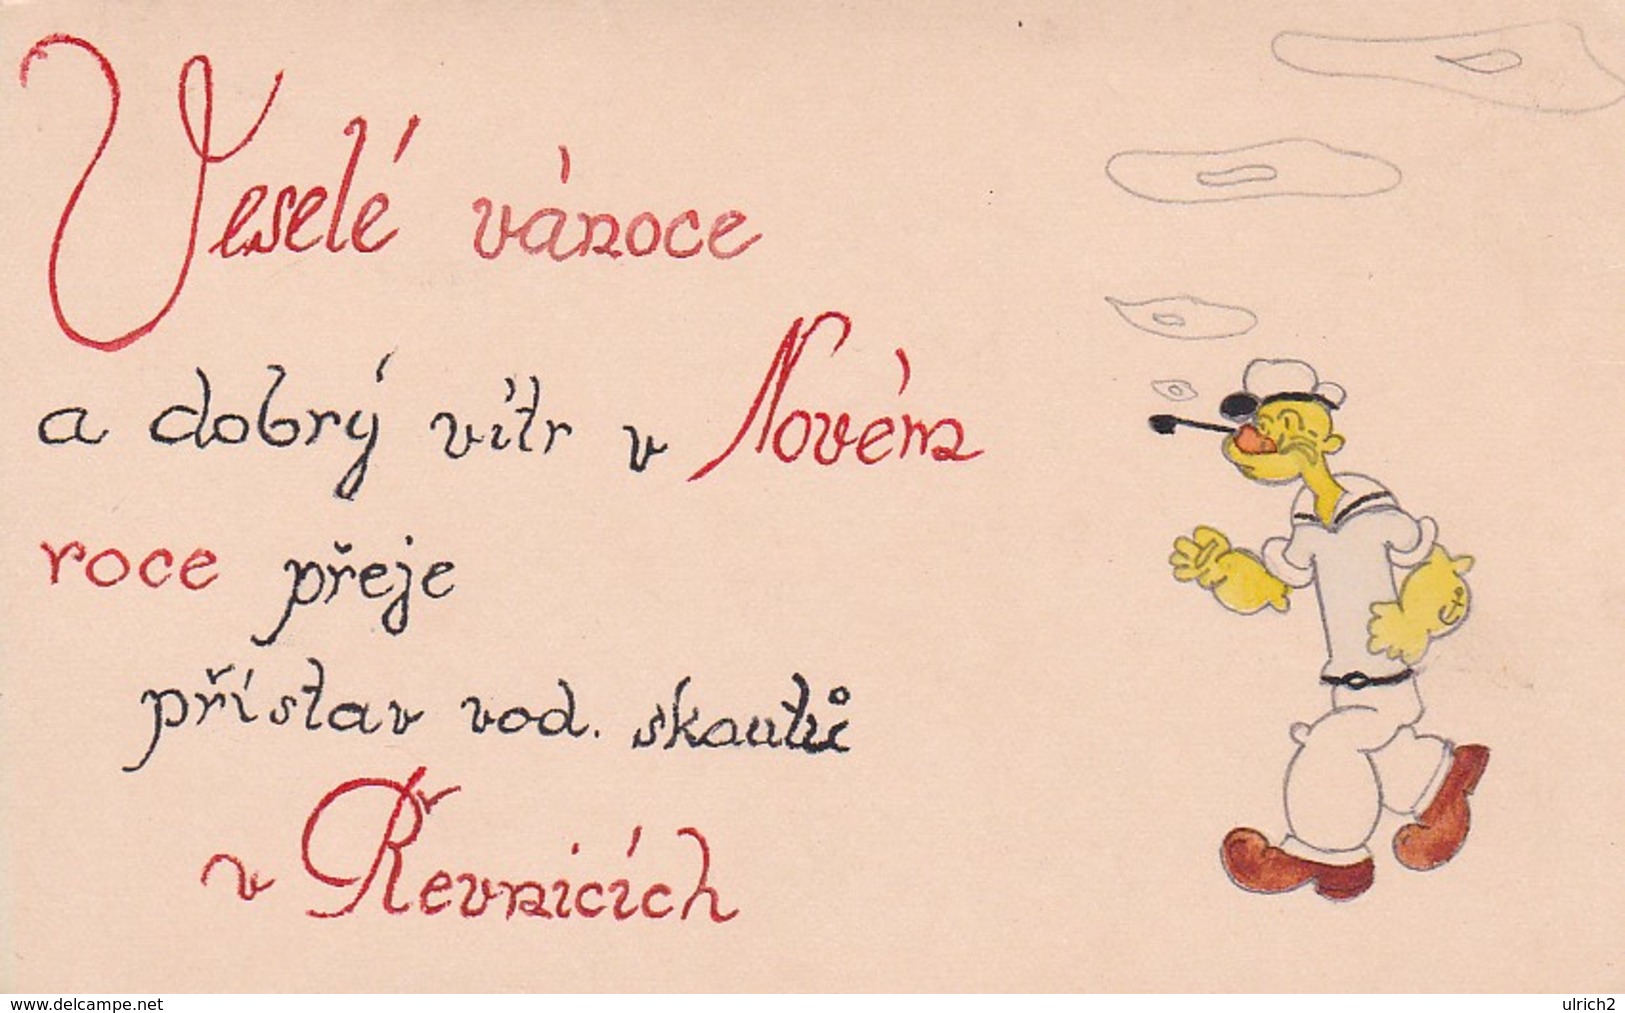 Veselé vánoce
a dobrý vítr v Novém
roce přeje
přístav vod. skautů
v Řevnicích
www.delcampe.net
ulrich2